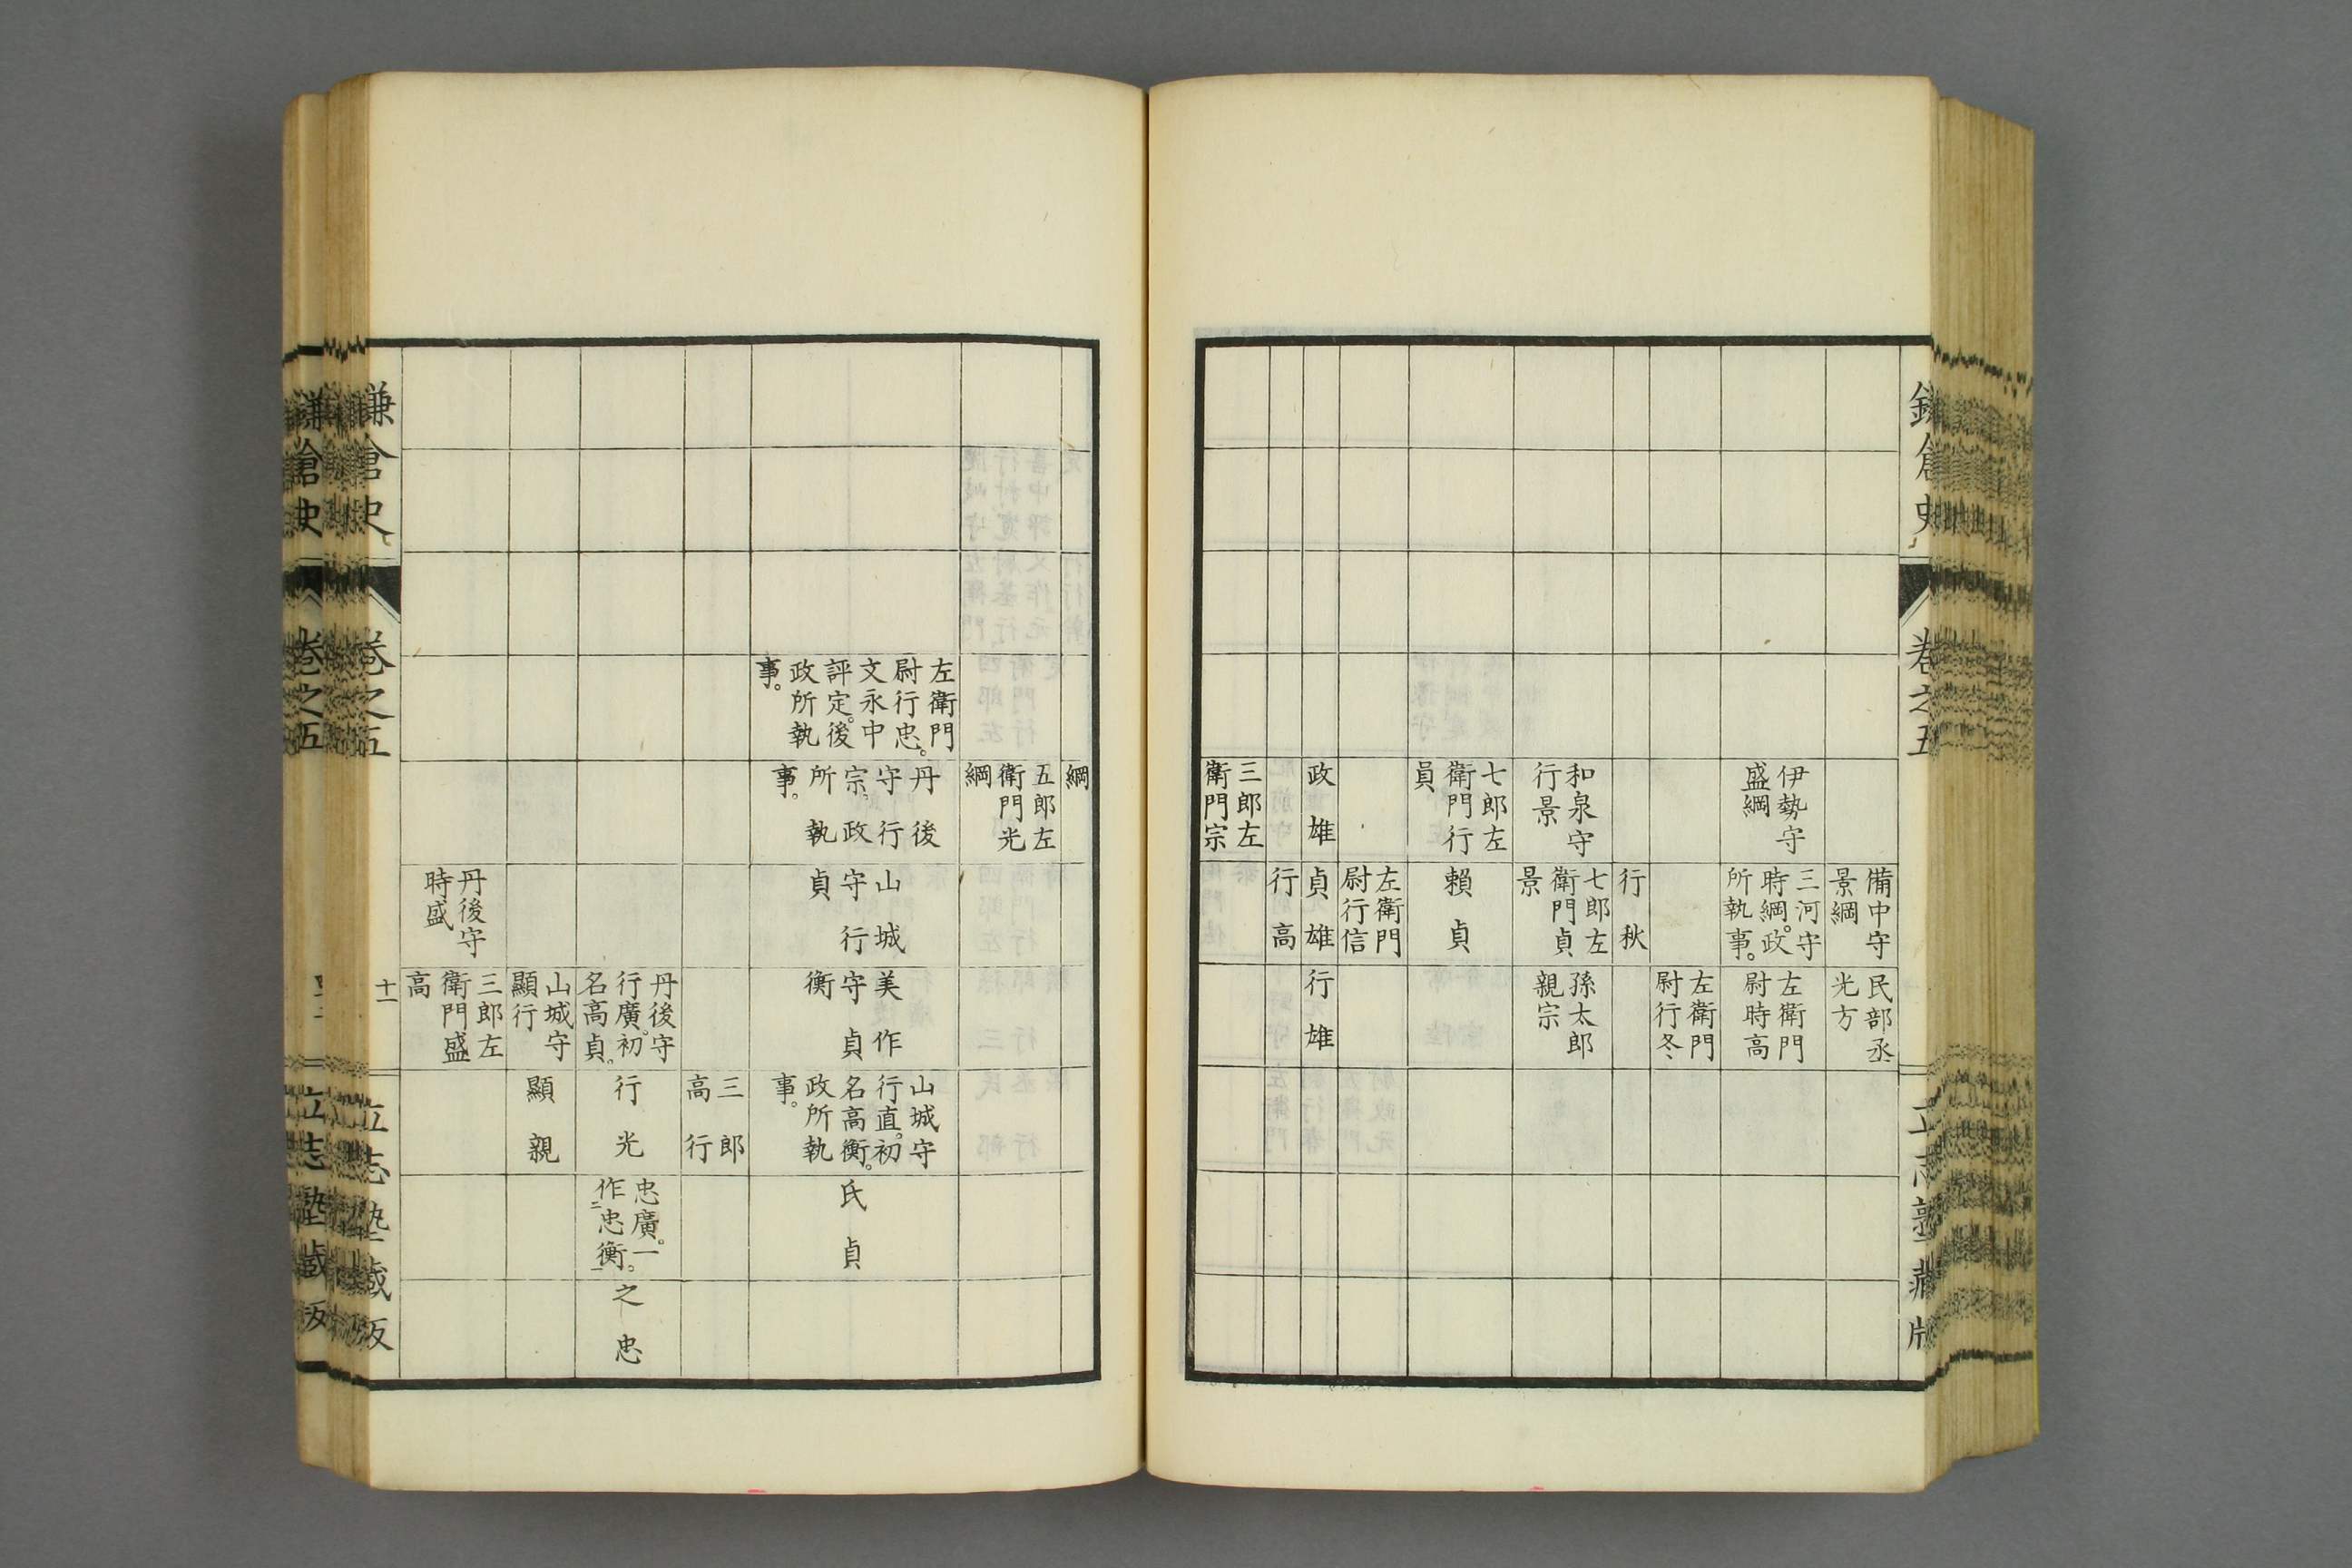 鎌倉史
卷之五
立志塾藏版
備中守
景綱
民部丞
光方
伊勢守
盛綱
三河守
時綱。政
所執事。
左衛門
尉時高
左衛門
尉行冬
行秋
和泉守
行景
七郎左
衛門貞
景
孫太郎
親宗
七郎左
衛門行
員
賴貞
左衛門
尉行信
政雄
貞雄
行雄
行高
三郎左
衛門宗
綱
五郎左
衛門光
綱
左衛門
尉行忠。
文永中
評定。後
政所執
事。
丹後
守行
宗。政
所執
事。
山城
守行
貞
美作
守貞
衡
山城守
行直。初
名高衡。
政所執
事。
氏貞
三郎
高行
丹後守
行廣。初
名高貞。
行光
忠廣。一
作二忠衡一。
之忠
山城守
顯行
顯親
丹後守
時盛
三郎左
衛門盛
高
鎌倉史
卷之五
十一
立志塾藏版
鎌倉史
卷之五
立志塾藏版